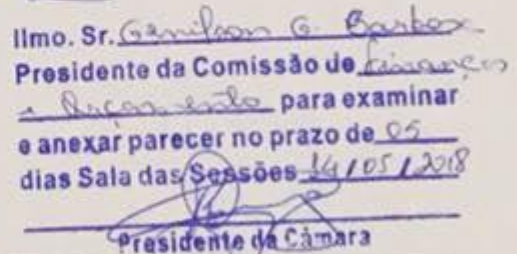 Ilmo. Sr. Genilson G. Barbosa
Presidente da Comissão de Finanças
e Orçamento para examinar
e anexar parecer no prazo de 05
dias Sala das Sessões 14/05/2018
Presidente da Câmara